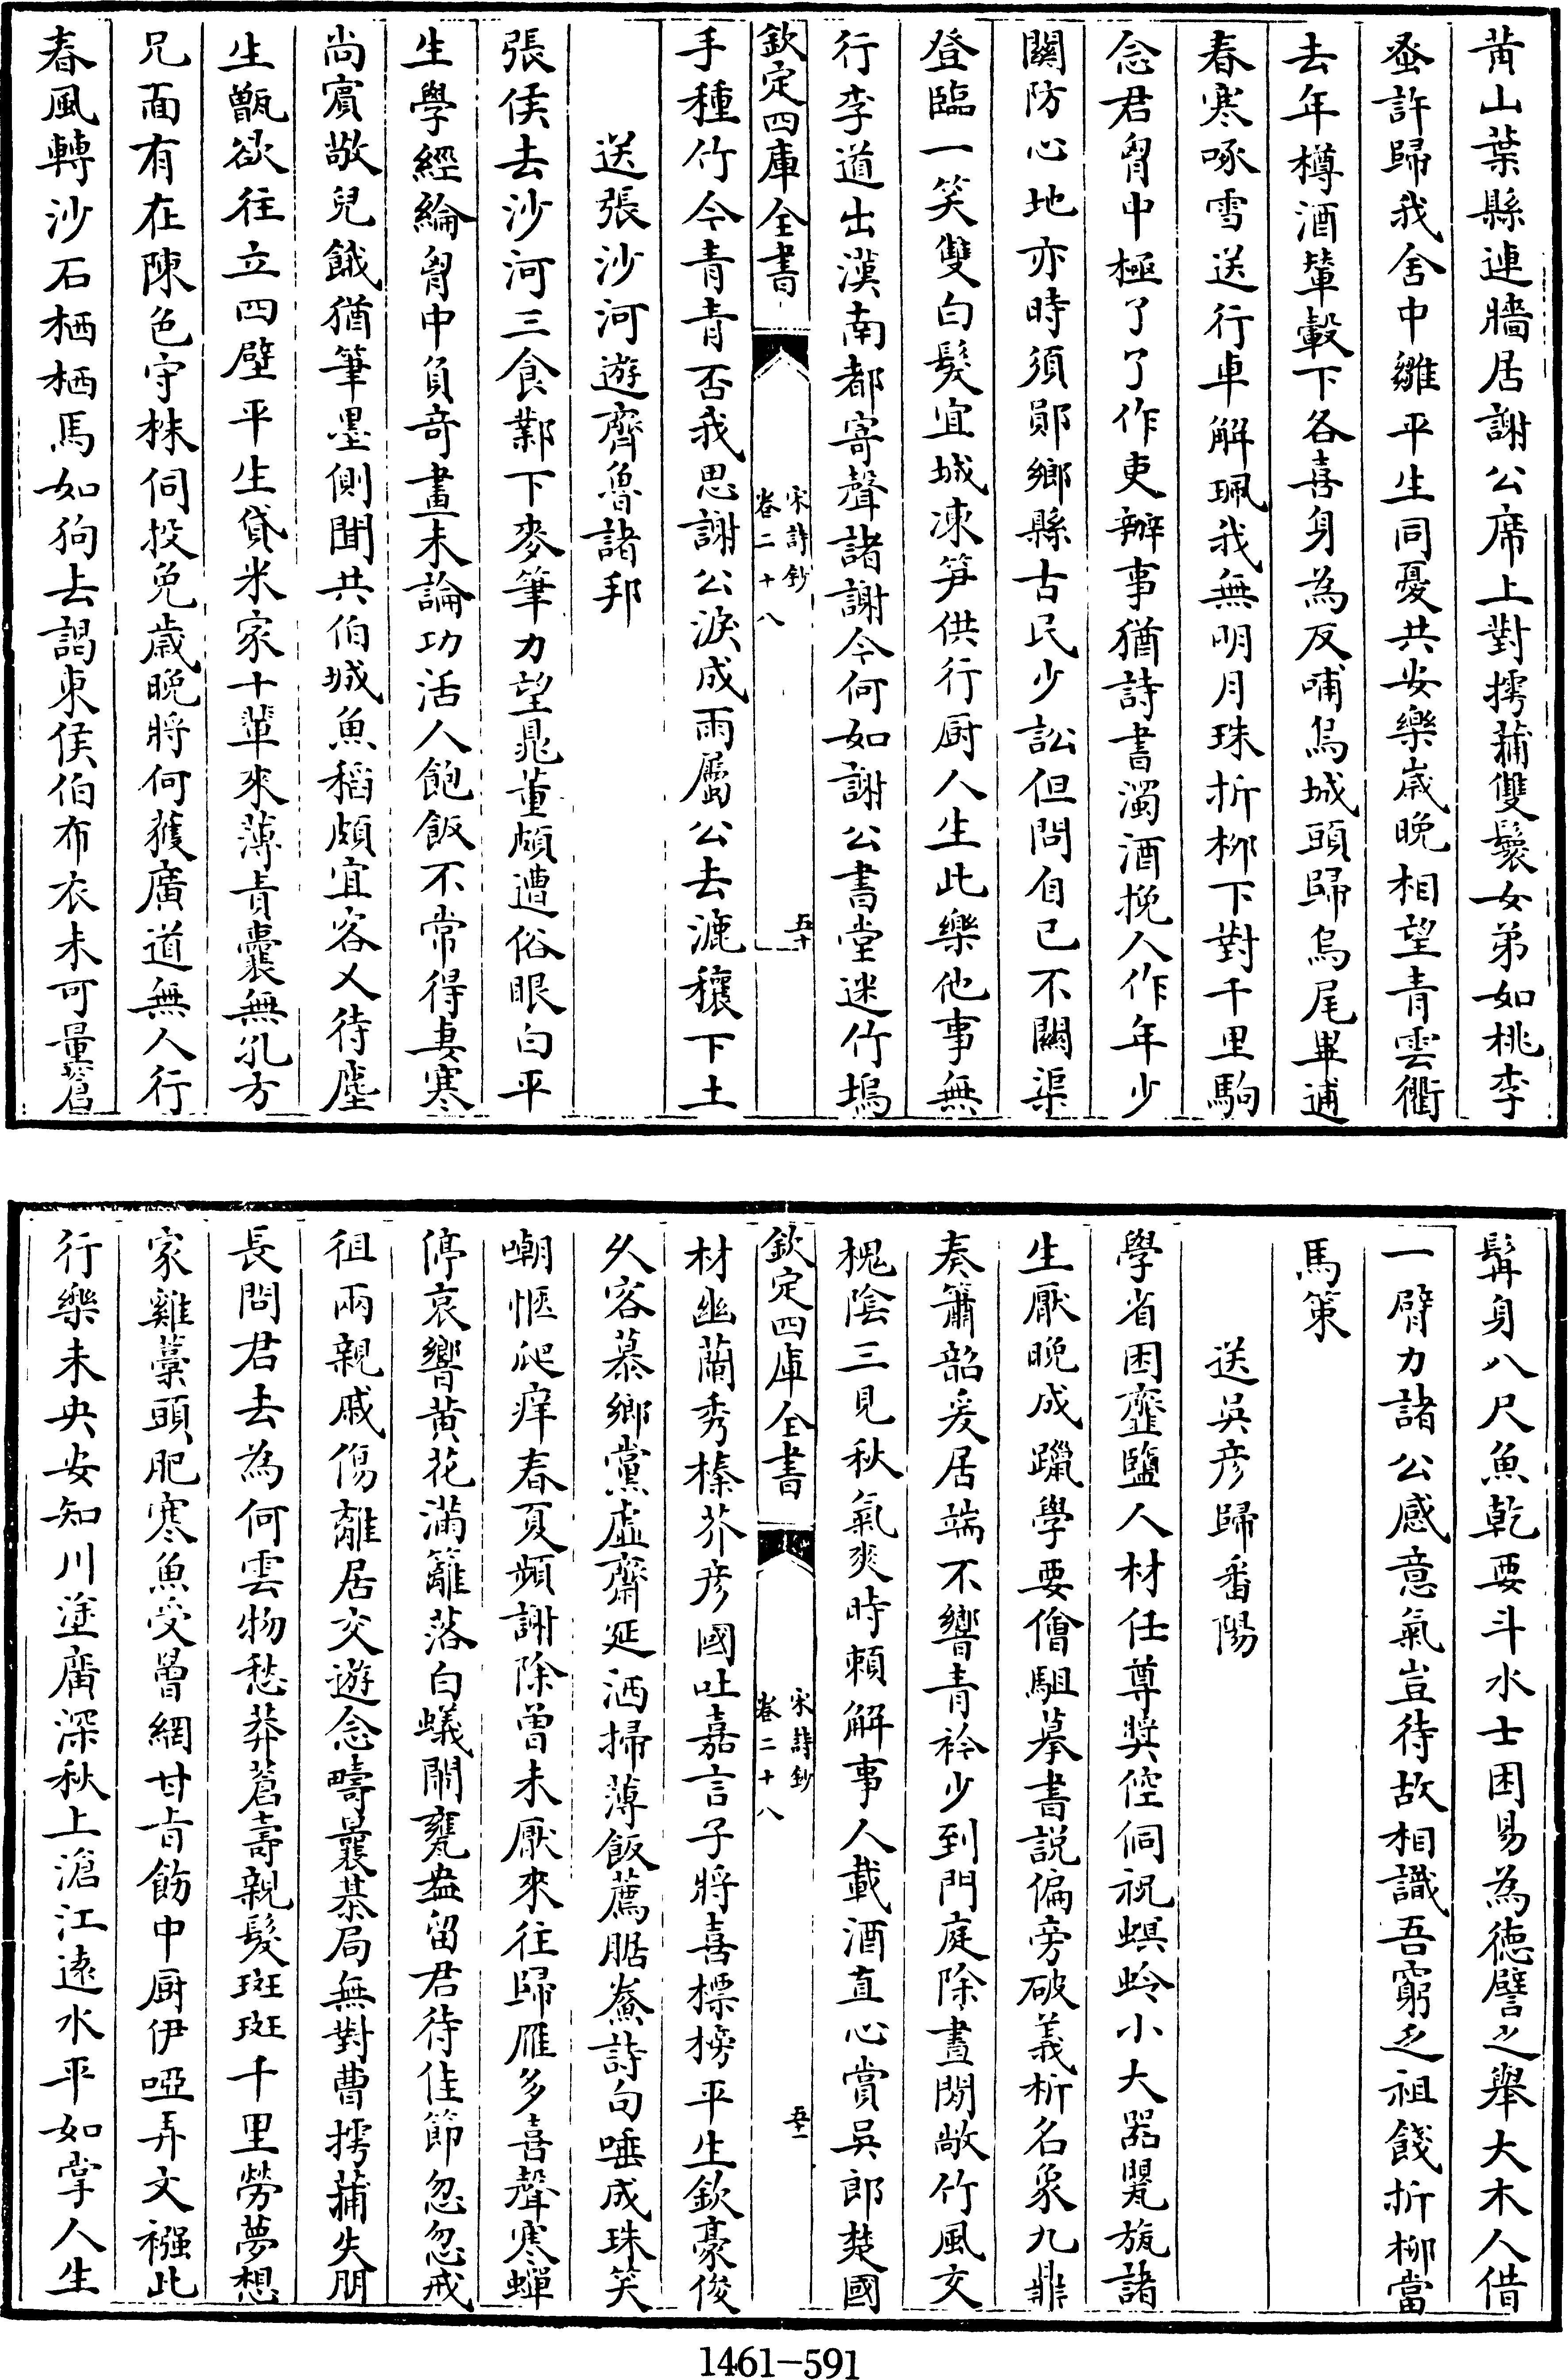 黄山葉縣連牆居謝公席上對摴蒱雙鬟女弟如桃李
蚤許歸我舍中雛平生同憂共安樂歳晚相望青雲衢
去年樽酒輦轂下各喜身為反哺烏城頭歸烏尾畢逋
春寒啄雪送行車解珮我無明月珠折柳下對千里駒
念君胷中極了了作吏辦事猶詩書濁酒挽人作年少
關防心地亦時須鄖鄉縣古民少訟但問自已不關渠
登臨一笑雙白髮宜城凍笋供行厨人生此樂他事無
行李道出漢南都寄聲諸謝今何如謝公書堂迷竹塢
欽定四庫全書
宋詩鈔
卷二十八
五十
手種竹今青青否我思謝公淚成雨屬公去漉穰下土
送張沙河遊齊魯諸邦
張侯去沙河三食鄴下麥筆力望鼂董頗遭俗眼白平
生學經綸胷中負竒畫未論功活人飽飯不常得妻寒
尚賔敬兒餓猶筆墨側聞共伯城魚稻頗宜客乂待塵
生甑欲往立四壁平生貸米家十輩來薄責囊無孔方
兄面有在陳色守株伺投兔歳晚將何獲廣道無人行
春風轉沙石栖栖馬如狗去謁東侯伯布衣未可量蒼
髯身八尺魚乾要斗水士困易為徳譬之舉大木人借
一臂力諸公感意氣豈待故相識吾窮乏祖餞折柳當
馬策
送吳彦歸番陽
學省困虀鹽人材任尊奬倥侗祝螟蛉小大器罌瓬諸
生厭晚成躐學要儈駔摹書説偏旁破義析名象九鼎
奏簫韶爰居端不響青衿少到門庭除晝閒敞竹風交
槐陰三見秋氣爽時頼解事人載酒直心賞吳郎楚國
欽定四庫全書
宋詩鈔
卷二十八
五十一
材幽蘭秀榛芥彦國吐嘉言子將喜標榜平生欽豪俊
乆客慕鄉黨虚齋延洒掃薄飯薦腒鱻詩句唾成珠笑
嘲愜爬痒春夏頻謝除曽未厭來往歸雁多喜聲寒蟬
停哀響黄花滿籬落白蟻閙甕盎留君待佳節忽忽戒
徂兩親戚傷離居交遊念疇曩棊局無對曹摴蒱失朋
長問君去為何雲物愁莽蒼壽親髮斑斑千里勞夢想
家雞藁頭肥寒魚受罾網甘㫖飭中厨伊啞弄文襁此
行樂未央安知川塗廣深秋上滄江逺水平如掌人生
1461-591